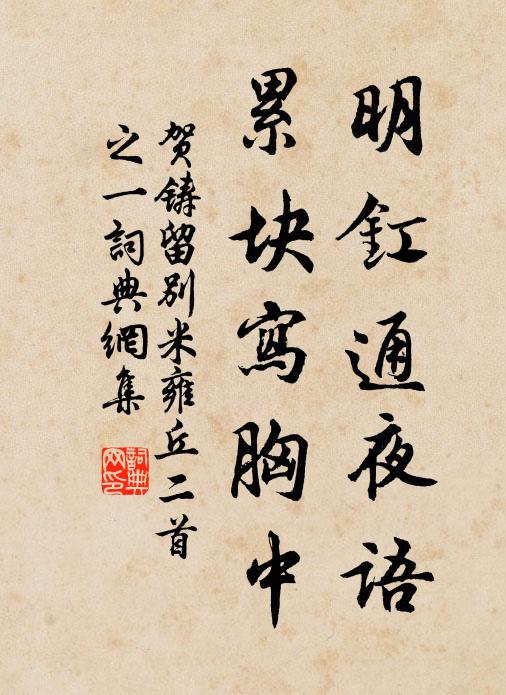 明釭通夜语
累块寫胸中
贺铸留别米雍丘二首
之一詞典網集
詞典网印